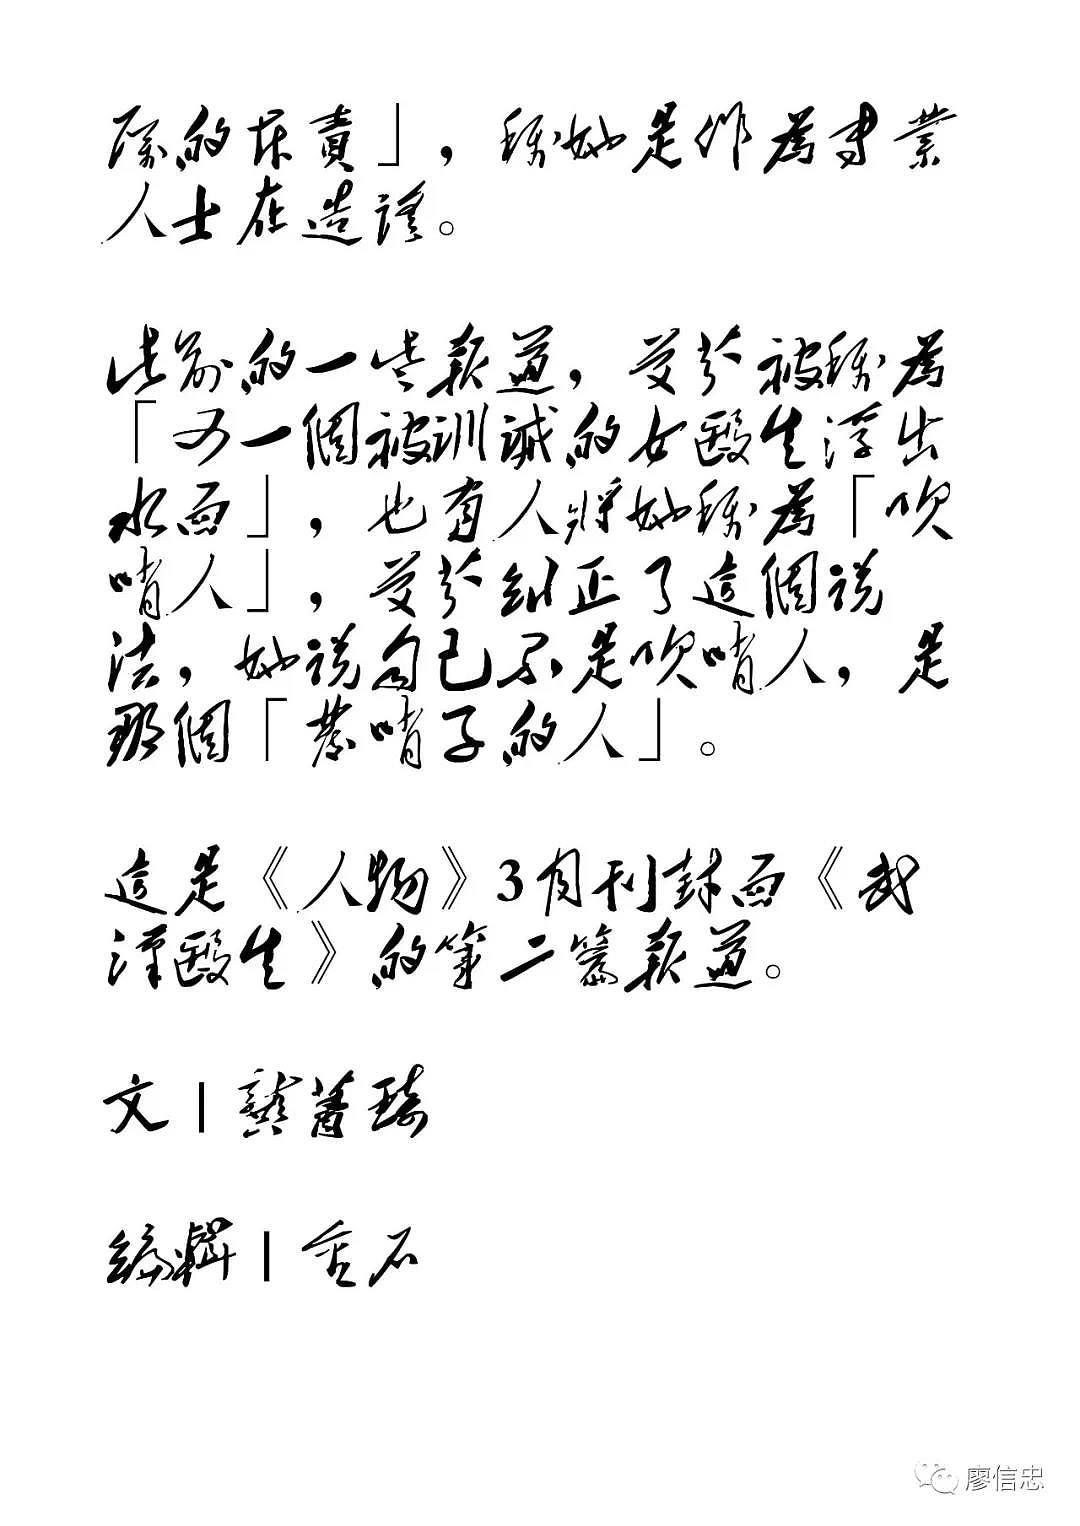 厲的斥責」，稱她是作為專業
人士在造謠。
此前的一些報道，艾芬被稱為
「又一個被訓誡的女醫生浮出
水面」，也有人將她稱為「吹
哨人」，艾芬糾正了這個說
法，她說自己不是吹哨人，是
那個「發哨子的人」。
這是《人物》3月刊封面《武
漢醫生》的第二篇報道。
文 | 龔菁琦
編輯 | 金石
廖信忠